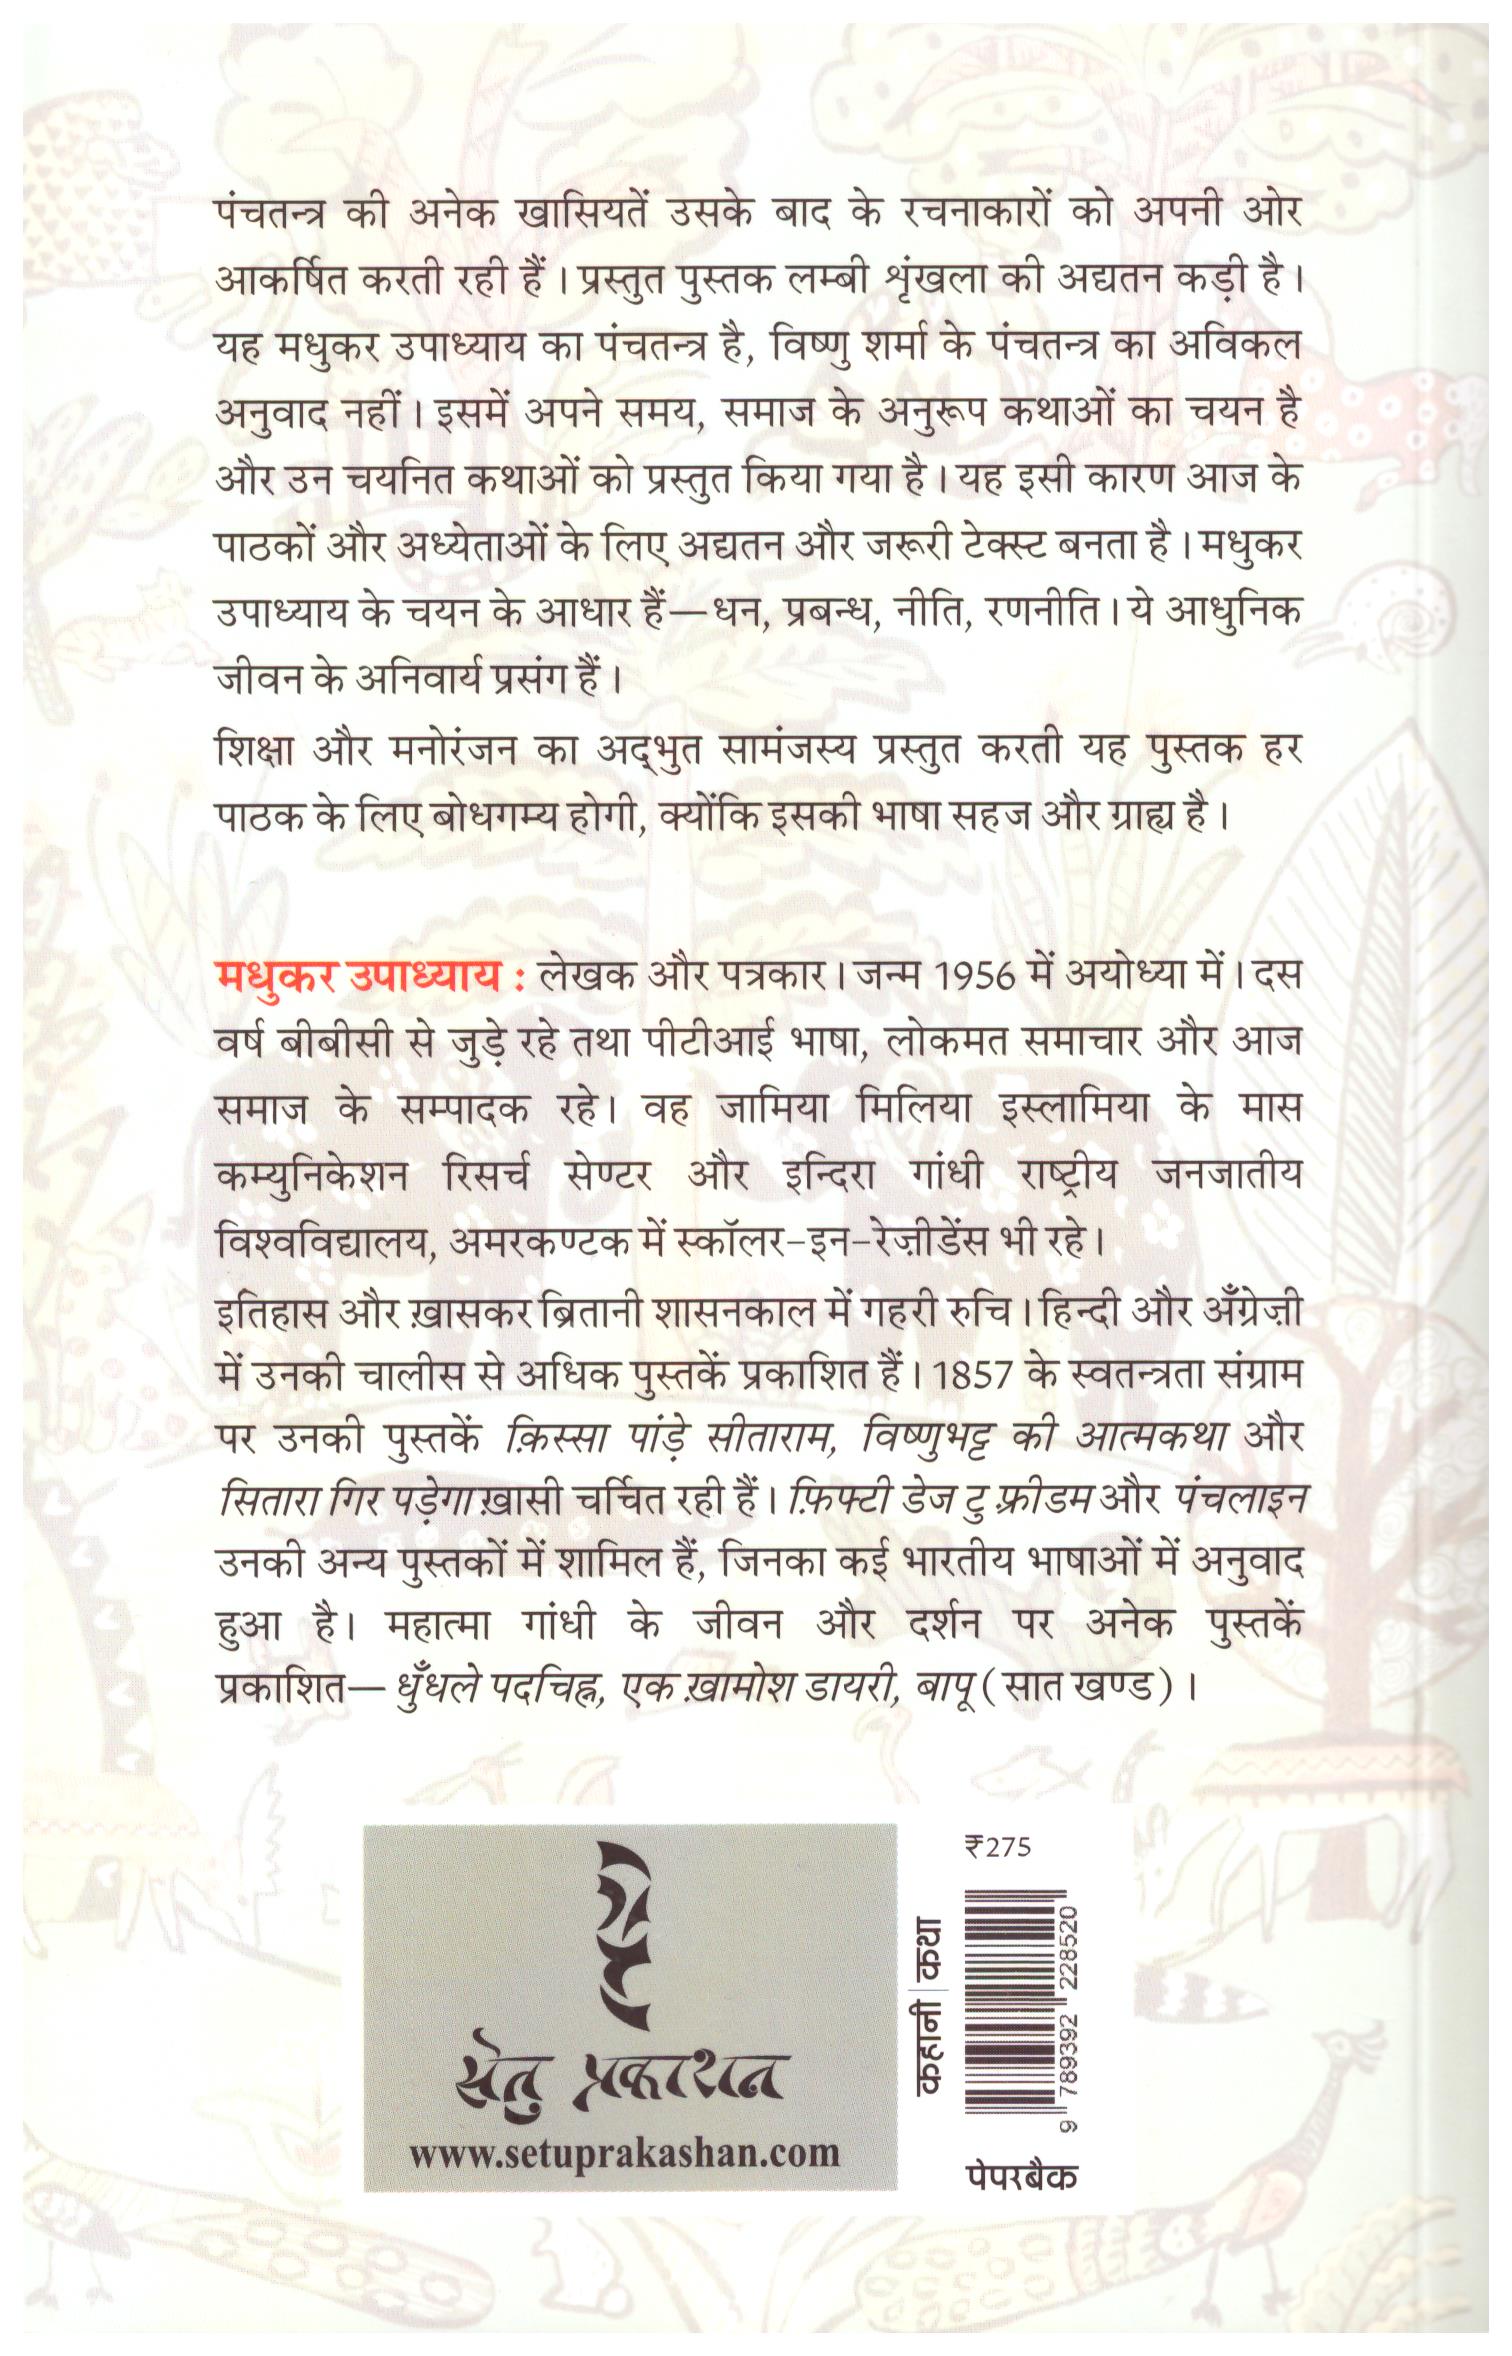 पंचतन्त्र की अनेक खासियतें उसके बाद के रचनाकारों को अपनी ओर
आकर्षित करती रही हैं। प्रस्तुत पुस्तक लम्बी शृंखला की अद्यतन कड़ी है।
यह मधुकर उपाध्याय का पंचतन्त्र है, विष्णु शर्मा के पंचतन्त्र का अविकल
अनुवाद नहीं। इसमें अपने समय, समाज के अनुरूप कथाओं का चयन है
और उन चयनित कथाओं को प्रस्तुत किया गया है। यह इसी कारण आज के
पाठकों और अध्येताओं के लिए अद्यतन और जरूरी टेक्स्ट बनता है। मधुकर
उपाध्याय के चयन के आधार हैं—धन, प्रबन्ध, नीति, रणनीति। ये आधुनिक
जीवन के अनिवार्य प्रसंग हैं।
शिक्षा और मनोरंजन का अद्‌भुत सामंजस्य प्रस्तुत करती यह पुस्तक हर
पाठक के लिए बोधगम्य होगी, क्योंकि इसकी भाषा सहज और ग्राह्य है।
मधुकर उपाध्याय : लेखक और पत्रकार। जन्म 1956 में अयोध्या में। दस
वर्ष बीबीसी से जुड़े रहे तथा पीटीआई भाषा, लोकमत समाचार और आज
समाज के सम्पादक रहे। वह जामिया मिलिया इस्लामिया के मास
कम्युनिकेशन रिसर्च सेण्टर और इन्दिरा गांधी राष्ट्रीय जनजातीय
विश्वविद्यालय, अमरकण्टक में स्कॉलर-इन-रेज़ीडेंस भी रहे।
इतिहास और ख़ासकर ब्रितानी शासनकाल में गहरी रुचि। हिन्दी और अँग्रेज़ी
में उनकी चालीस से अधिक पुस्तकें प्रकाशित हैं। 1857 के स्वतन्त्रता संग्राम
पर उनकी पुस्तकें क़िस्सा पांड़े सीताराम, विष्णुभट्ट की आत्मकथा और
सितारा गिर पड़ेगा ख़ासी चर्चित रही हैं। फ़िफ्टी डेज टु फ़्रीडम और पंचलाइन
उनकी अन्य पुस्तकों में शामिल हैं, जिनका कई भारतीय भाषाओं में अनुवाद
हुआ है। महात्मा गांधी के जीवन और दर्शन पर अनेक पुस्तकें
प्रकाशित— धुँधले पदचिह्न, एक ख़ामोश डायरी, बापू (सात खण्ड)।
सेतु प्रकाशन
www.setuprakashan.com
कहानी | कथा
₹275
9 789392 228520
पेपरबैक